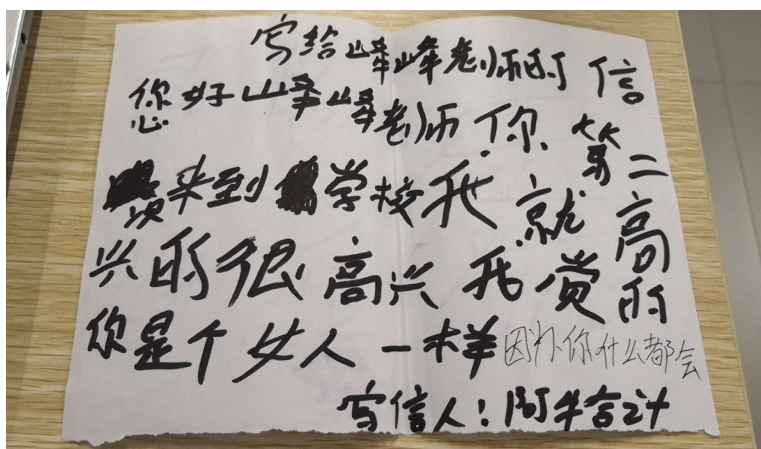 写给峰峰老师的信
您好峰峰老师你第二
次来到学校我就高
兴的很高兴我觉的
你是个女人一样因为你什么都会
写信人：阿牛计